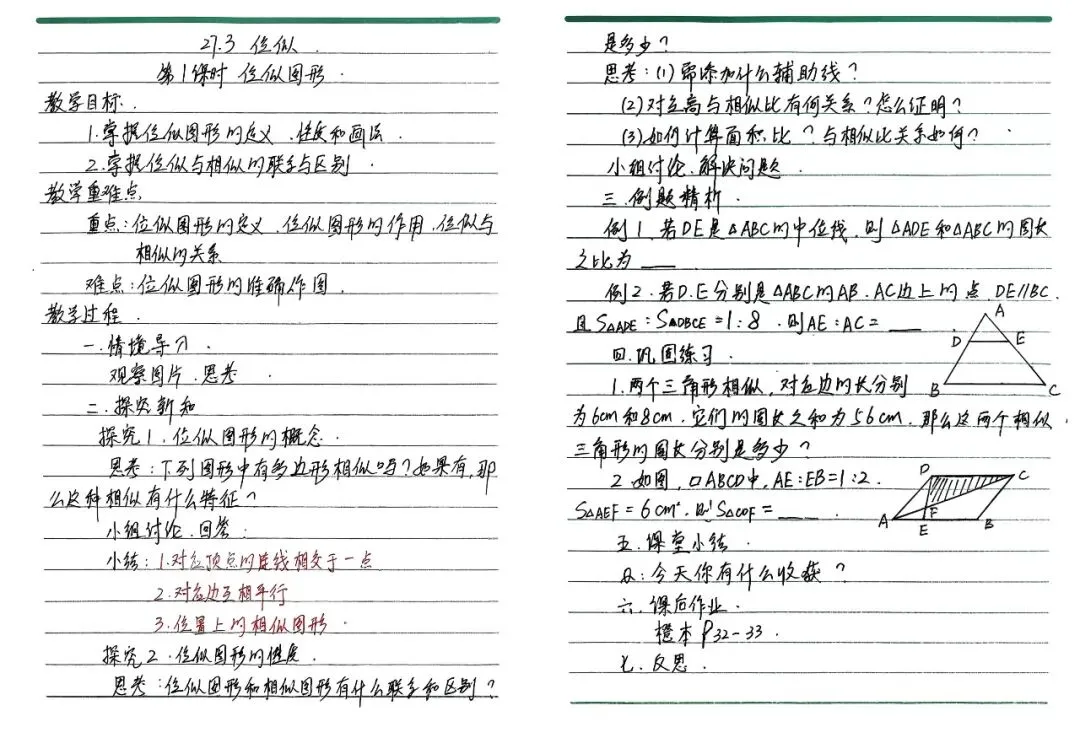 27.3 位似.
第1课时 位似图形.
教学目标.
1.掌握位似图形的定义、性质和画法.
2.掌握位似与相似的联系与区别.
教学重难点
重点:位似图形的定义、位似图形的作用、位似与
相似的关系
难点:位似图形的准确作图.
教学过程.
一.情境导习.
观察图片、思考.
二.探究新知
探究1.位似图形的概念.
思考:下列图形中有多边形相似吗?如果有,那
么这种相似有什么特征?
小组讨论、回答:
小结:1.对应顶点的连线相交于一点
2.对应边互相平行
3.位置上的相似图形.
探究2.位似图形的性质.
思考:位似图形和相似图形有什么联系和区别?
是多少?
思考:(1)需添加什么辅助线?
(2)对应高与相似比有何关系?怎么证明?
(3)如何计算面积比?与相似比关系如何?
小组讨论、解决问题
三.例题精析.
例1.若DE是△ABC的中位线,则△ADE和△ABC的周长
之比为____
例2.若D.E分别是△ABC的AB、AC边上的点,DE∥BC,
且S△ADE:S△DBCE=1:8.则AE:AC=____
A
D
E
B
C
四.巩固练习.
1.两个三角形相似,对应边的长分别
为6cm和8cm.它们的周长之和为56cm,那么这两个相似
三角形的周长分别是多少?
2.如图,▱ABCD中,AE:EB=1:2.
S△AEF=6cm²,则S△CDF=____.
D
C
A
F
E
B
五.课堂小结.
Q:今天你有什么收获?
六.课后作业.
橙本P32-33.
七.反思.